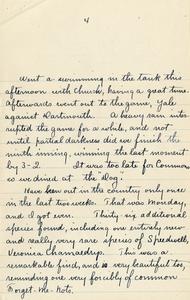 4
Went a swimming in the tank this
afternoon with Church, having a great time.
Afterwards went out to the game, Yale
against Dartmouth. A heavy rain inter
rupted the game for a while, and not
until partial darkness did we finish the
ninth inning, winning the last moment
by 3-2. It was too late for Commons
so we dined at the "Dog".
Have been out in the country only once
in the last two weeks. That was Monday,
and I got even. Thirty six additional
species found, including one entirely new
and really very rare species of Speedwell,
Veronica Chamaedrys. This was a
remarkable find, and is very beautiful too,
reminding one very forcibly of common
Forget-me-nots.